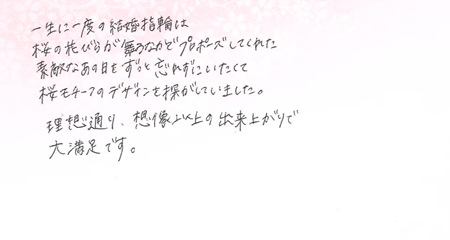 一生に一度の結婚指輪は
桜の花びらが舞うなかでプロポーズしてくれた
素敵なあの日をずっと忘れずにいたくて
桜モチーフのデザインを探がしていました。
理想通り、想像以上の出来上がりで
大満足です。